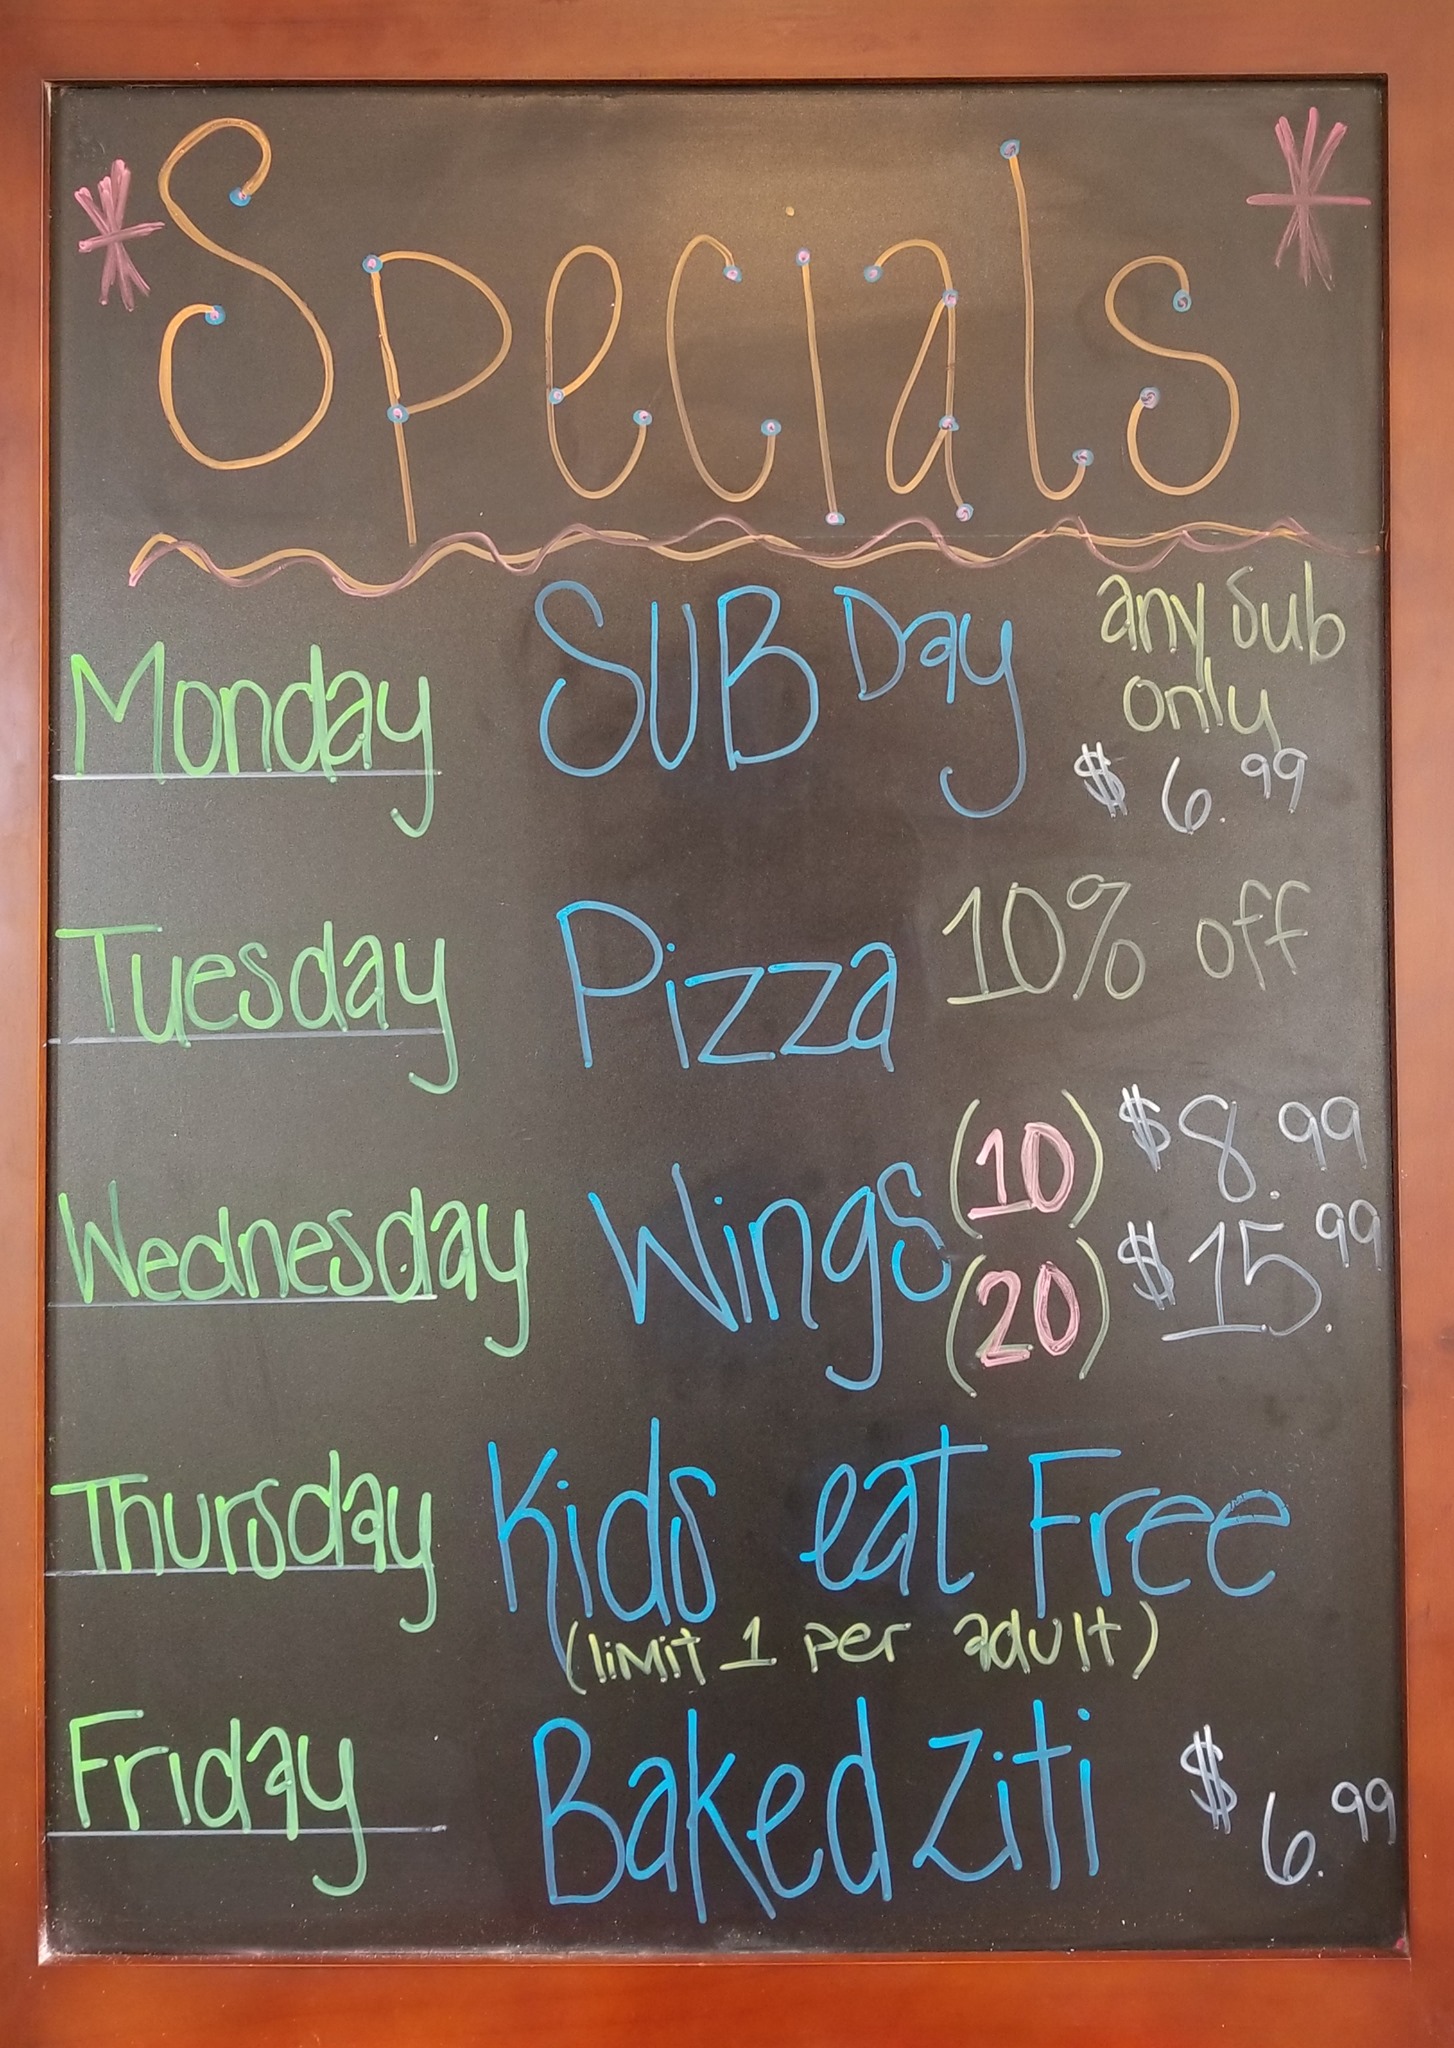 * Specials *
Monday SUB Day any sub
only
$6.99
Tuesday Pizza 10% off
Wednesday Wings (10) $8.99
(20) $15.99
Thursday Kids eat Free
(limit 1 per adult)
Friday Baked Ziti $6.99